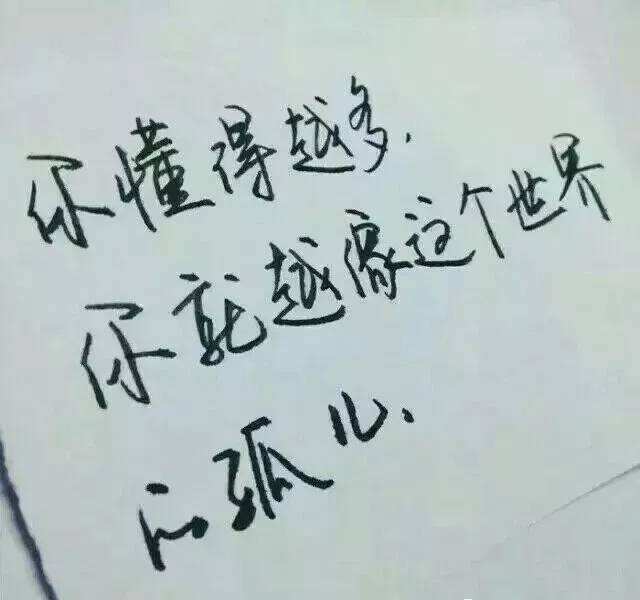 你懂得越多，
你就越像这个世界
的孤儿.